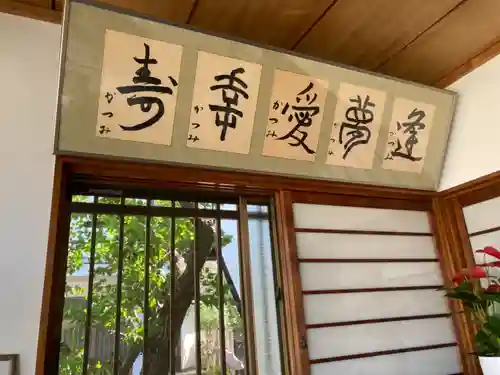 寿 かつみ
幸 かつみ
愛 かつみ
夢 かつみ
逢 かつみ